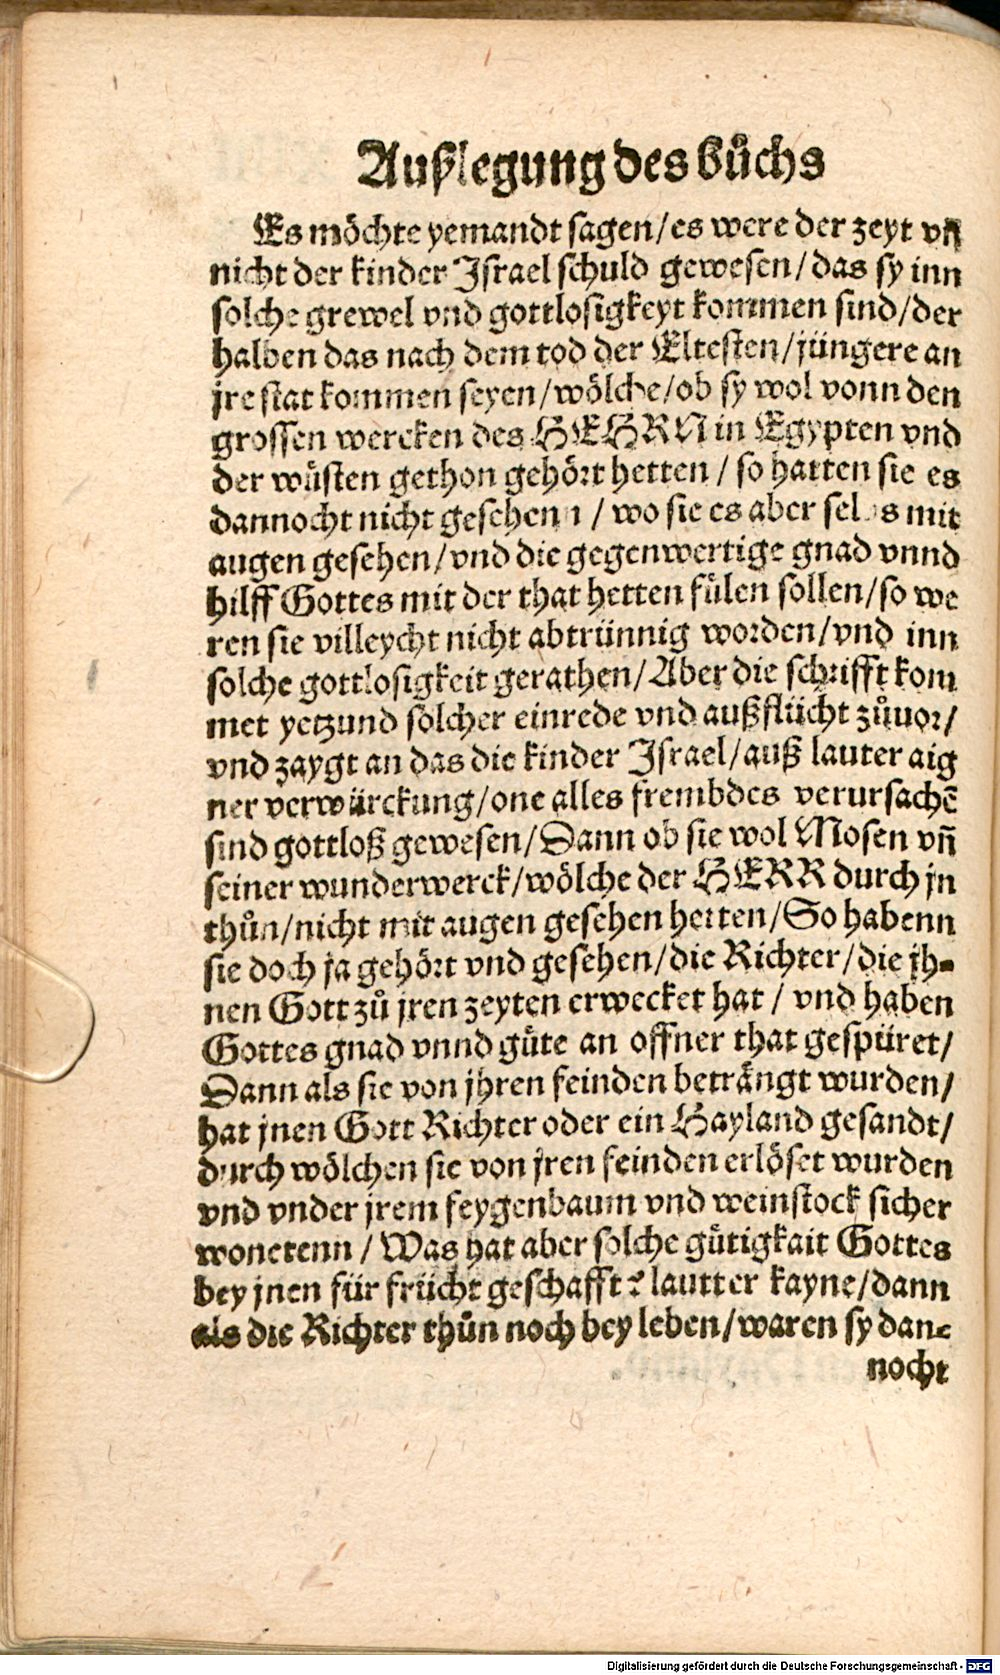 Außlegung des bůchs
Es möchte yemandt sagen/es were der zeyt vñ
nicht der kinder Israel schuld gewesen/das sy inn
solche grewel vnd gottlosigkeyt kommen sind/der
halben das nach dem tod der Eltesten/jüngere an
jre stat kommen seyen/wölche/ob sy wol vonn den
grossen wercken des HERRN in Egypten vnd
der wüsten gethon gehört hetten / so hatten sie es
dannocht nicht gesehenn / wo sie es aber selbs mit
augen gesehen/vnd die gegenwertige gnad vnnd
hilff Gottes mit der that hetten fülen sollen/so we
ren sie villeycht nicht abtrünnig worden/vnd inn
solche gottlosigkeit gerathen/Aber die schrifft kom
met yetzund solcher einrede vnd außflücht zůuor/
vnd zaygt an das die kinder Israel/auß lauter aig
ner verwürckung/one alles frembdes verursachẽ
sind gottloß gewesen/Dann ob sie wol Mosen vñ
seiner wunderwerck/wölche der HERR durch jn
thůn/nicht mit augen gesehen hetten/So habenn
sie doch ja gehört vnd gesehen/die Richter/die jh-
nen Gott zů jren zeyten erwecket hat / vnd haben
Gottes gnad vnnd güte an offner that gespüret/
Dann als sie von jhren feinden beträngt wurden/
hat jnen Gott Richter oder ein Hayland gesandt/
durch wölchen sie von jren feinden erlöset wurden
vnd vnder jrem feygenbaum vnd weinstock sicher
wonetenn / Was hat aber solche gütigkait Gottes
bey jnen für frücht geschafft? lautter kayne/dann
als die Richter thůn noch bey leben/waren sy dan-
nocht
Digitalisierung gefördert durch die Deutsche Forschungsgemeinschaft - DFG